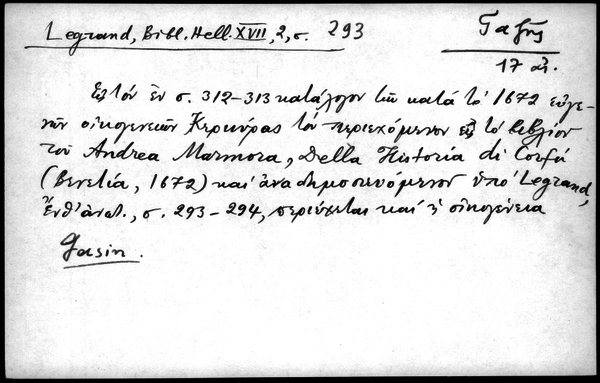 Legrand, Bibl. Hell. XVII, 2, σ. 293
Γαζῆς
17 αἰ.
Εἰς τὸν ἐν σ. 312-313 κατάλογον τῶν κατὰ τὸ 1672 εὐγε-
νῶν οἰκογενειῶν Κερκύρας τὸν περιεχόμενον εἰς τὸ βιβλίον
τοῦ Andrea Marmora, Della Historia di Corfu
(Βενετία, 1672) καὶ ἀναδημοσιευόμενον ὑπὸ Legrand,
ἔνθ' ἀνωτ., σ. 293-294, περιέχεται καὶ ἡ οἰκογένεια
Gasin.